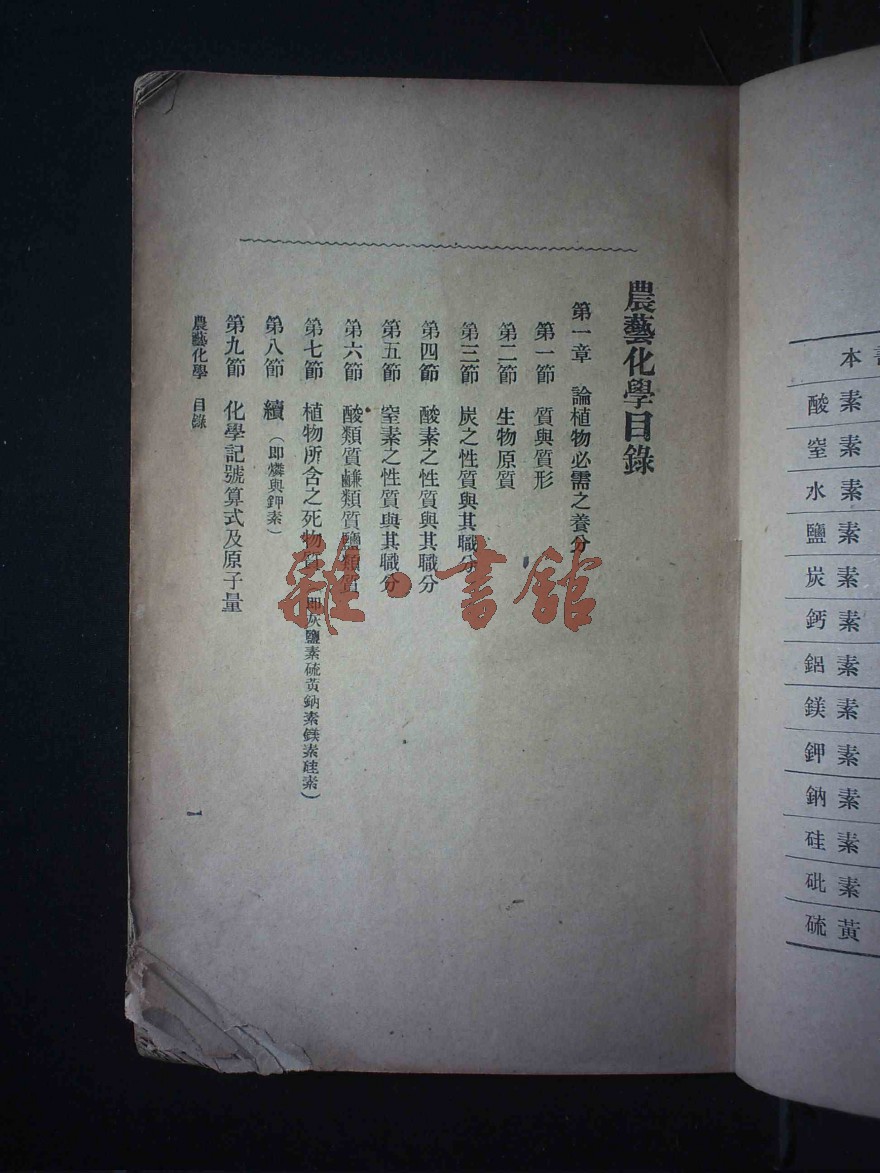 農藝化學目錄
第一章 論植物必需之養分
第一節 質與質形
第二節 生物原質
第三節 炭之性質與其職分
第四節 酸素之性質與其職分
第五節 窒素之性質與其職分
第六節 酸類質鹻類質鹽類質
第七節 植物所含之死物質(即灰鹽素硫黃鈉素鎂素硅素)
第八節 續(即燐與鉀素)
第九節 化學記號算式及原子量
農藝化學 目錄
一
雜·書館
本書
酸素
窒素
水素
鹽素
炭素
鈣素
鋁素
鎂素
鉀素
鈉素
硅素
砒素
硫黃